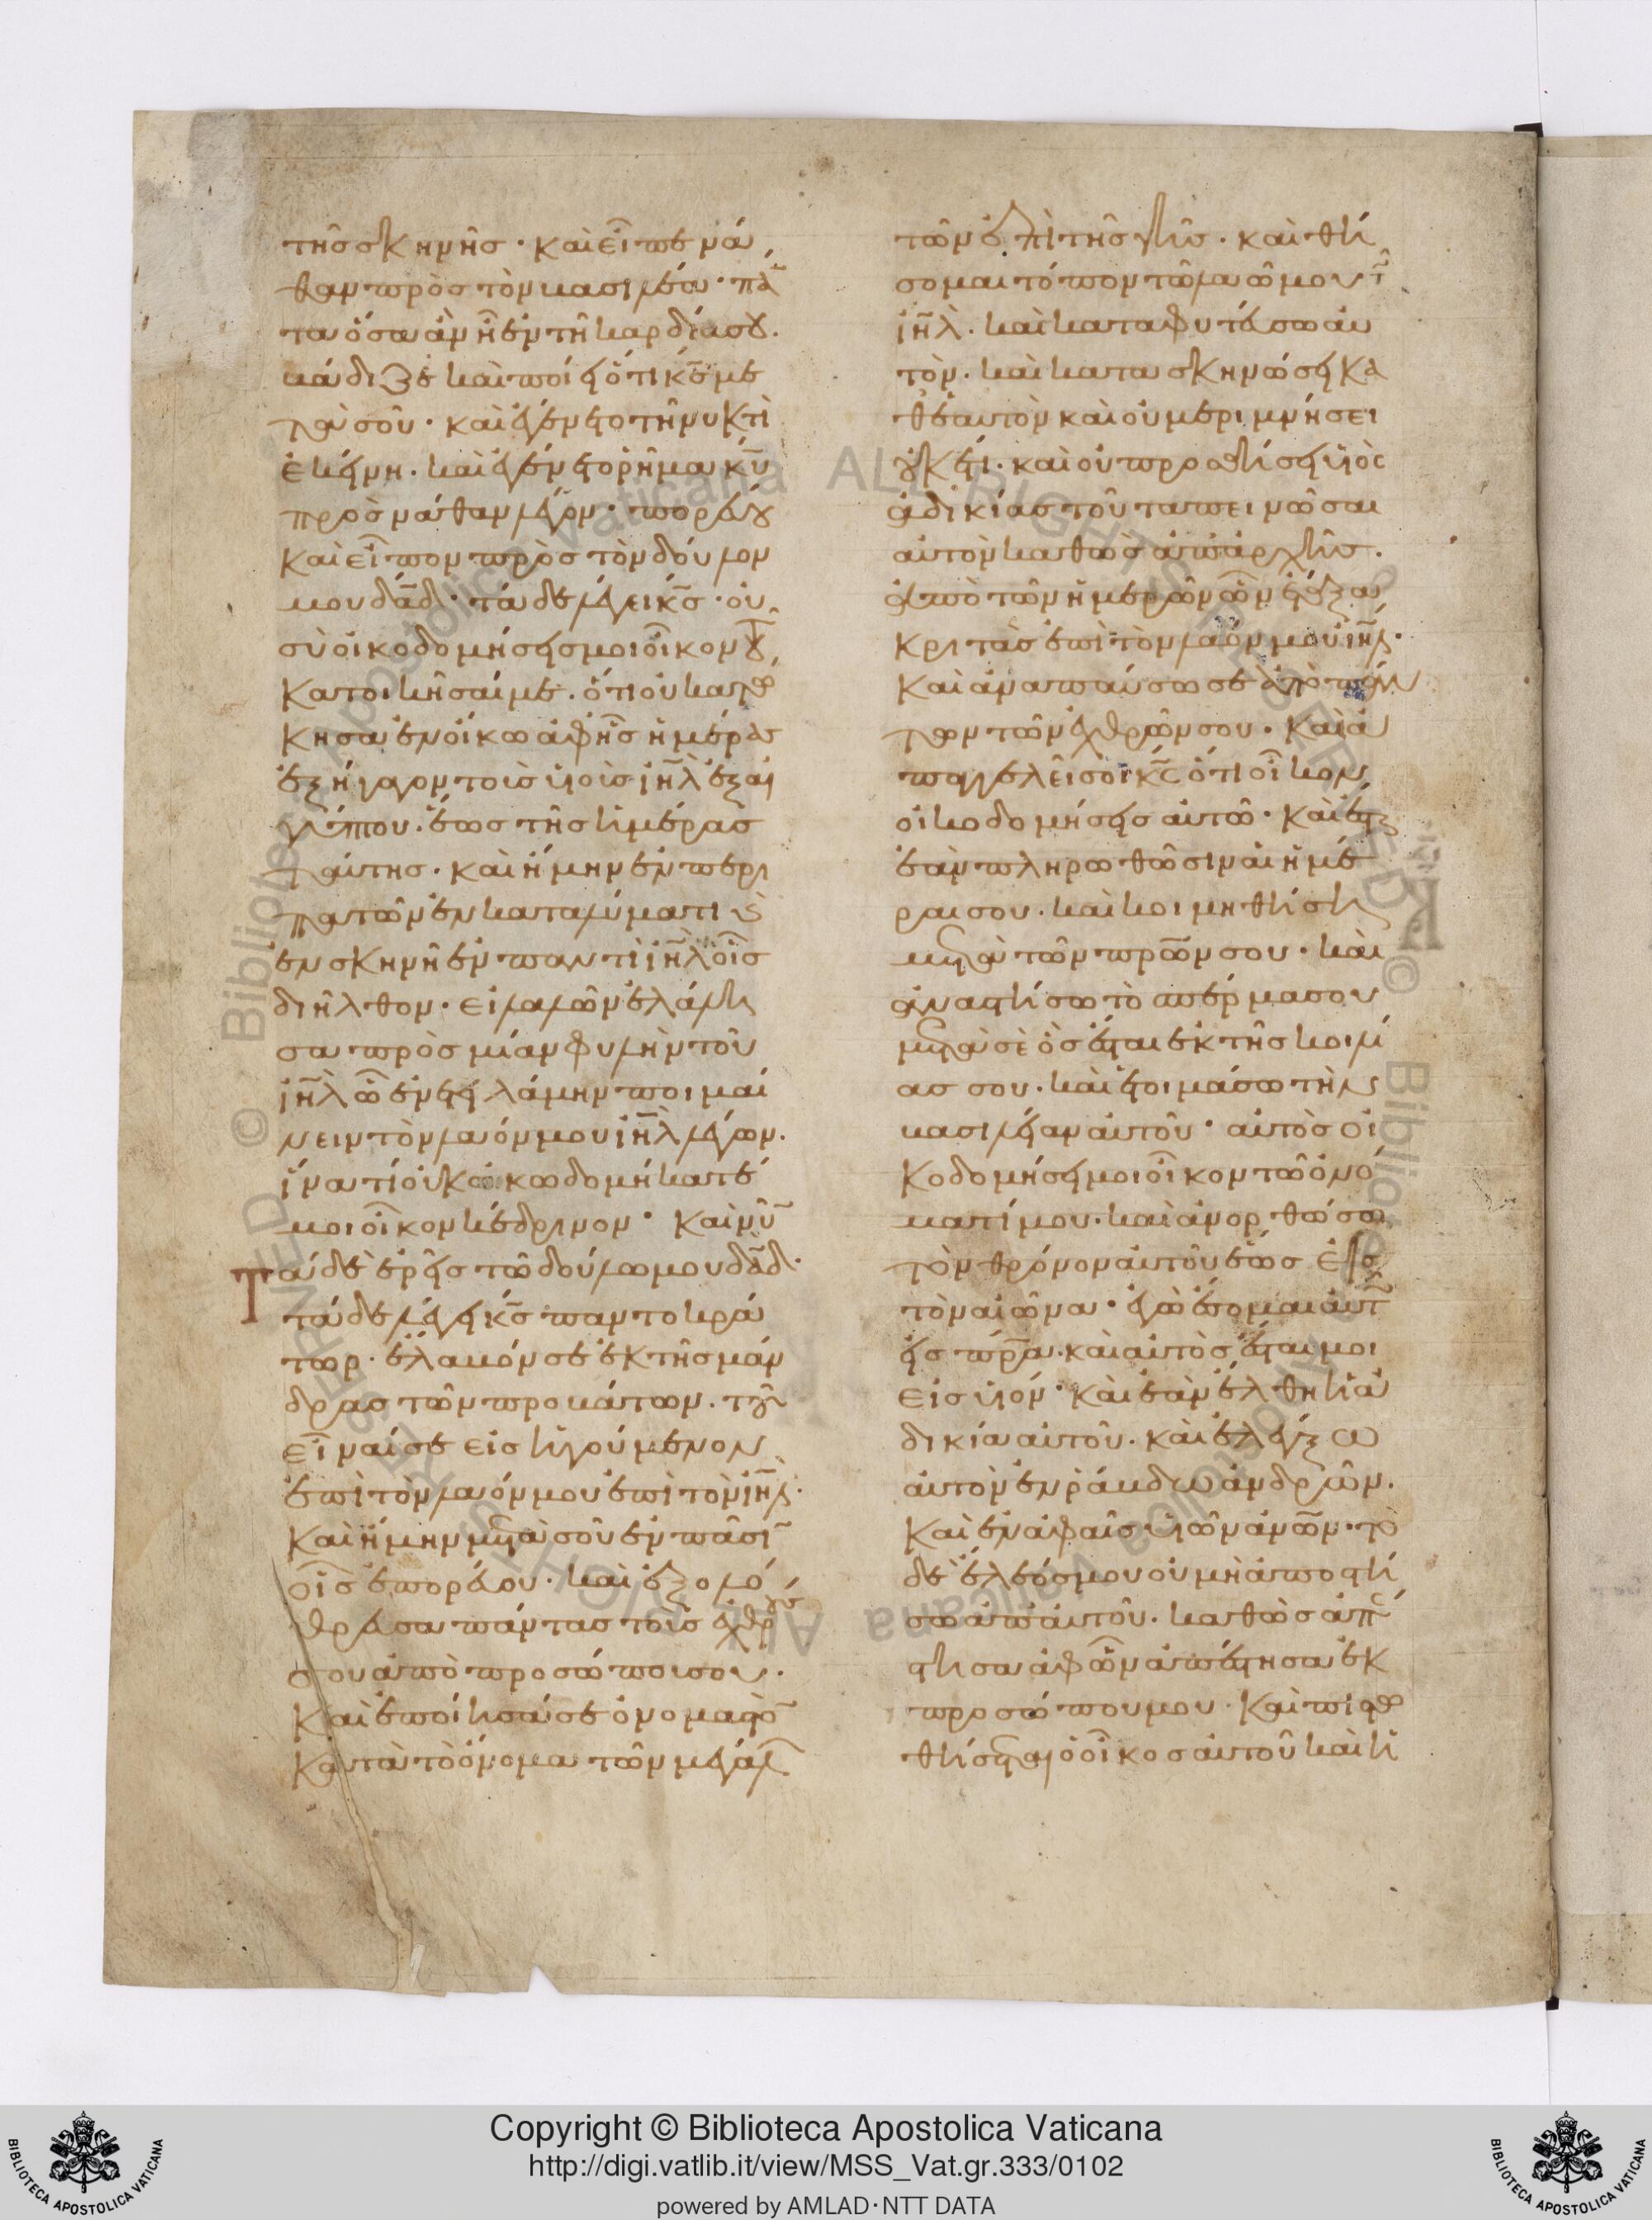 τῆς σκηνῆς · καὶ εἶπε νά
θαν πρὸς τὸν βασιλέα · πά̃
τα ὅσα ἂν ῇ ἐν τῇ καρδίᾳ σου ·
βάδιζε καὶ ποίει ὅτι κ̅ς̅ με
τὰ σοῦ · καὶ ἐγένετο τῇ νυκτὶ
ἐκείνῃ · καὶ ἐγένετο ῥῆμα κ̅υ̅
πρὸς νάθαν λέγον · πορεύου
καὶ εἶπον πρὸς τὸν δοῦλον
μου δα̅δ̅ · τάδε λέγει κ̅ς̅ · οὐ
σὺ οἰκοδομήσεις μοι οἶκον τοῦ
κατοικῆσαί με · ὅτι οὐ κατῴ
κησα ἐν οἴκω ἀφ ἧς ἡμέρας
ἐξήγαγον τοὺς υἱοὺς ι̅η̅λ̅ ἐξ αἰ
γύπτου · ἕως τῆς ἡμέρας
ταύτης · καὶ ἤμην ἐν περι
πατῶν ἐν καταλύματι καὶ
ἐν σκηνῇ ἐν παντὶ ι̅η̅λ̅ οἷς
διῆλθον · εἰ λαλῶν ἐλάλη
σα πρὸς μίαν φυλὴν τοῦ
ι̅η̅λ̅ ᾧ ἐνετειλάμην ποιμαί
νειν τὸν λαόν μου ι̅η̅λ̅ λέγων ·
ἵνα τί οὐκ οἰκωδομήκατέ
μοι οἶκον κέδρινον · καὶ νῦ̅
Τάδε ἐρεῖς τῶ δούλω μου δα̅δ̅ ·
τάδε λέγει κ̅ς̅ παντοκρά
τωρ · ἔλαβόν σε ἐκ τῆς μάν
δρας τῶν προβάτων · τοῦ
εἶναί σε εἰς ἡγούμενον
ἐπὶ τὸν λαόν μου ἐπὶ τὸν ι̅η̅λ̅ ·
καὶ ἤμην μετὰ σοῦ ἐν πᾶσι̅
οἷς ἐπορεύου · καὶ ἐξολό
θρευσα πάντας τοὺς ἐχθρούς
σου ἀπὸ προσώπου σου ·
καὶ ἐποίησά σε ὀνομαστὸ̅
κατὰ τὸ ὄνομα τῶν μεγάλ
τῶν ἐπὶ τῆς γῆς · καὶ θή
σομαι τόπον τῶ λαῶ μου τῶ
ι̅η̅λ̅ · καὶ καταφυτεύσω αὐ
τὸν · καὶ κατασκηνώσει κα
θ ἑαυτὸν καὶ οὐ μεριμνήσει
οὐκέτι · καὶ οὐ προσθήσει υἱὸς
ἀδικίας τοῦ ταπεινῶσαι
αὐτὸν καθὼς ἀπ ἀρχῆς ·
ἀπὸ τῶν ἡμερῶν ὧν ἔταξα
κριτὰς ἐπὶ τὸν λαόν μου ι̅η̅λ̅ ·
καὶ ἀναπαύσω σε ἀπὸ πάν
των τῶν ἐχθρῶν σου · καὶ ἀ
παγγελεῖ σοι κ̅ς̅ ὅτι οἶκον
οἰκοδομήσεις αὐτῶ · καὶ ἔσται
ἐὰν πληρωθῶσιν αἱ ἡμέ
ραι σου · καὶ κοιμηθήσῃ
μετὰ τῶν π̅ρ̅ω̅ν σου · καὶ
ἀναστήσω τὸ σπέρμα σου
μετὰ σὲ ὃς ἔσται ἐκ τῆς κοιλί
ας σου · καὶ ἑτοιμάσω τὴν
βασιλείαν αὐτοῦ · αὐτὸς οἰ
κοδομήσει μοι οἶκον τῶ ὀνό
ματί μου · καὶ ἀνορθώσω
τὸν θρόνον αὐτοῦ ἕως εἰς
τὸν αἰῶνα · ἐγὼ ἔσομαι αὐτῶ
εἰς π̅ρ̅α̅ · καὶ αὐτὸς ἔσται μοι
εἰς υἱόν · καὶ ἐὰν ἔλθῃ ἡ ἀ
δικία αὐτοῦ · καὶ ἐλέγξω
αὐτὸν ἐν ῥάβδω ἀνδρῶν ·
καὶ ἐν ἁφαῖς υἱῶν α̅ν̅ω̅ν · τὸ
δὲ ἔλεός μου οὐ μὴ ἀποστή
σω ἀπ αὐτοῦ · καθὼς ἀπέ
στησα ἀφ ὧν ἀπέστησα ἐκ
προσώπου μου · καὶ πιστω
θήσεται ὁ οἶκος αὐτοῦ καὶ ἡ
Copyright © Biblioteca Apostolica Vaticana
http://digi.vatlib.it/view/MSS_Vat.gr.333/0102
powered by AMLAD·NTT DATA